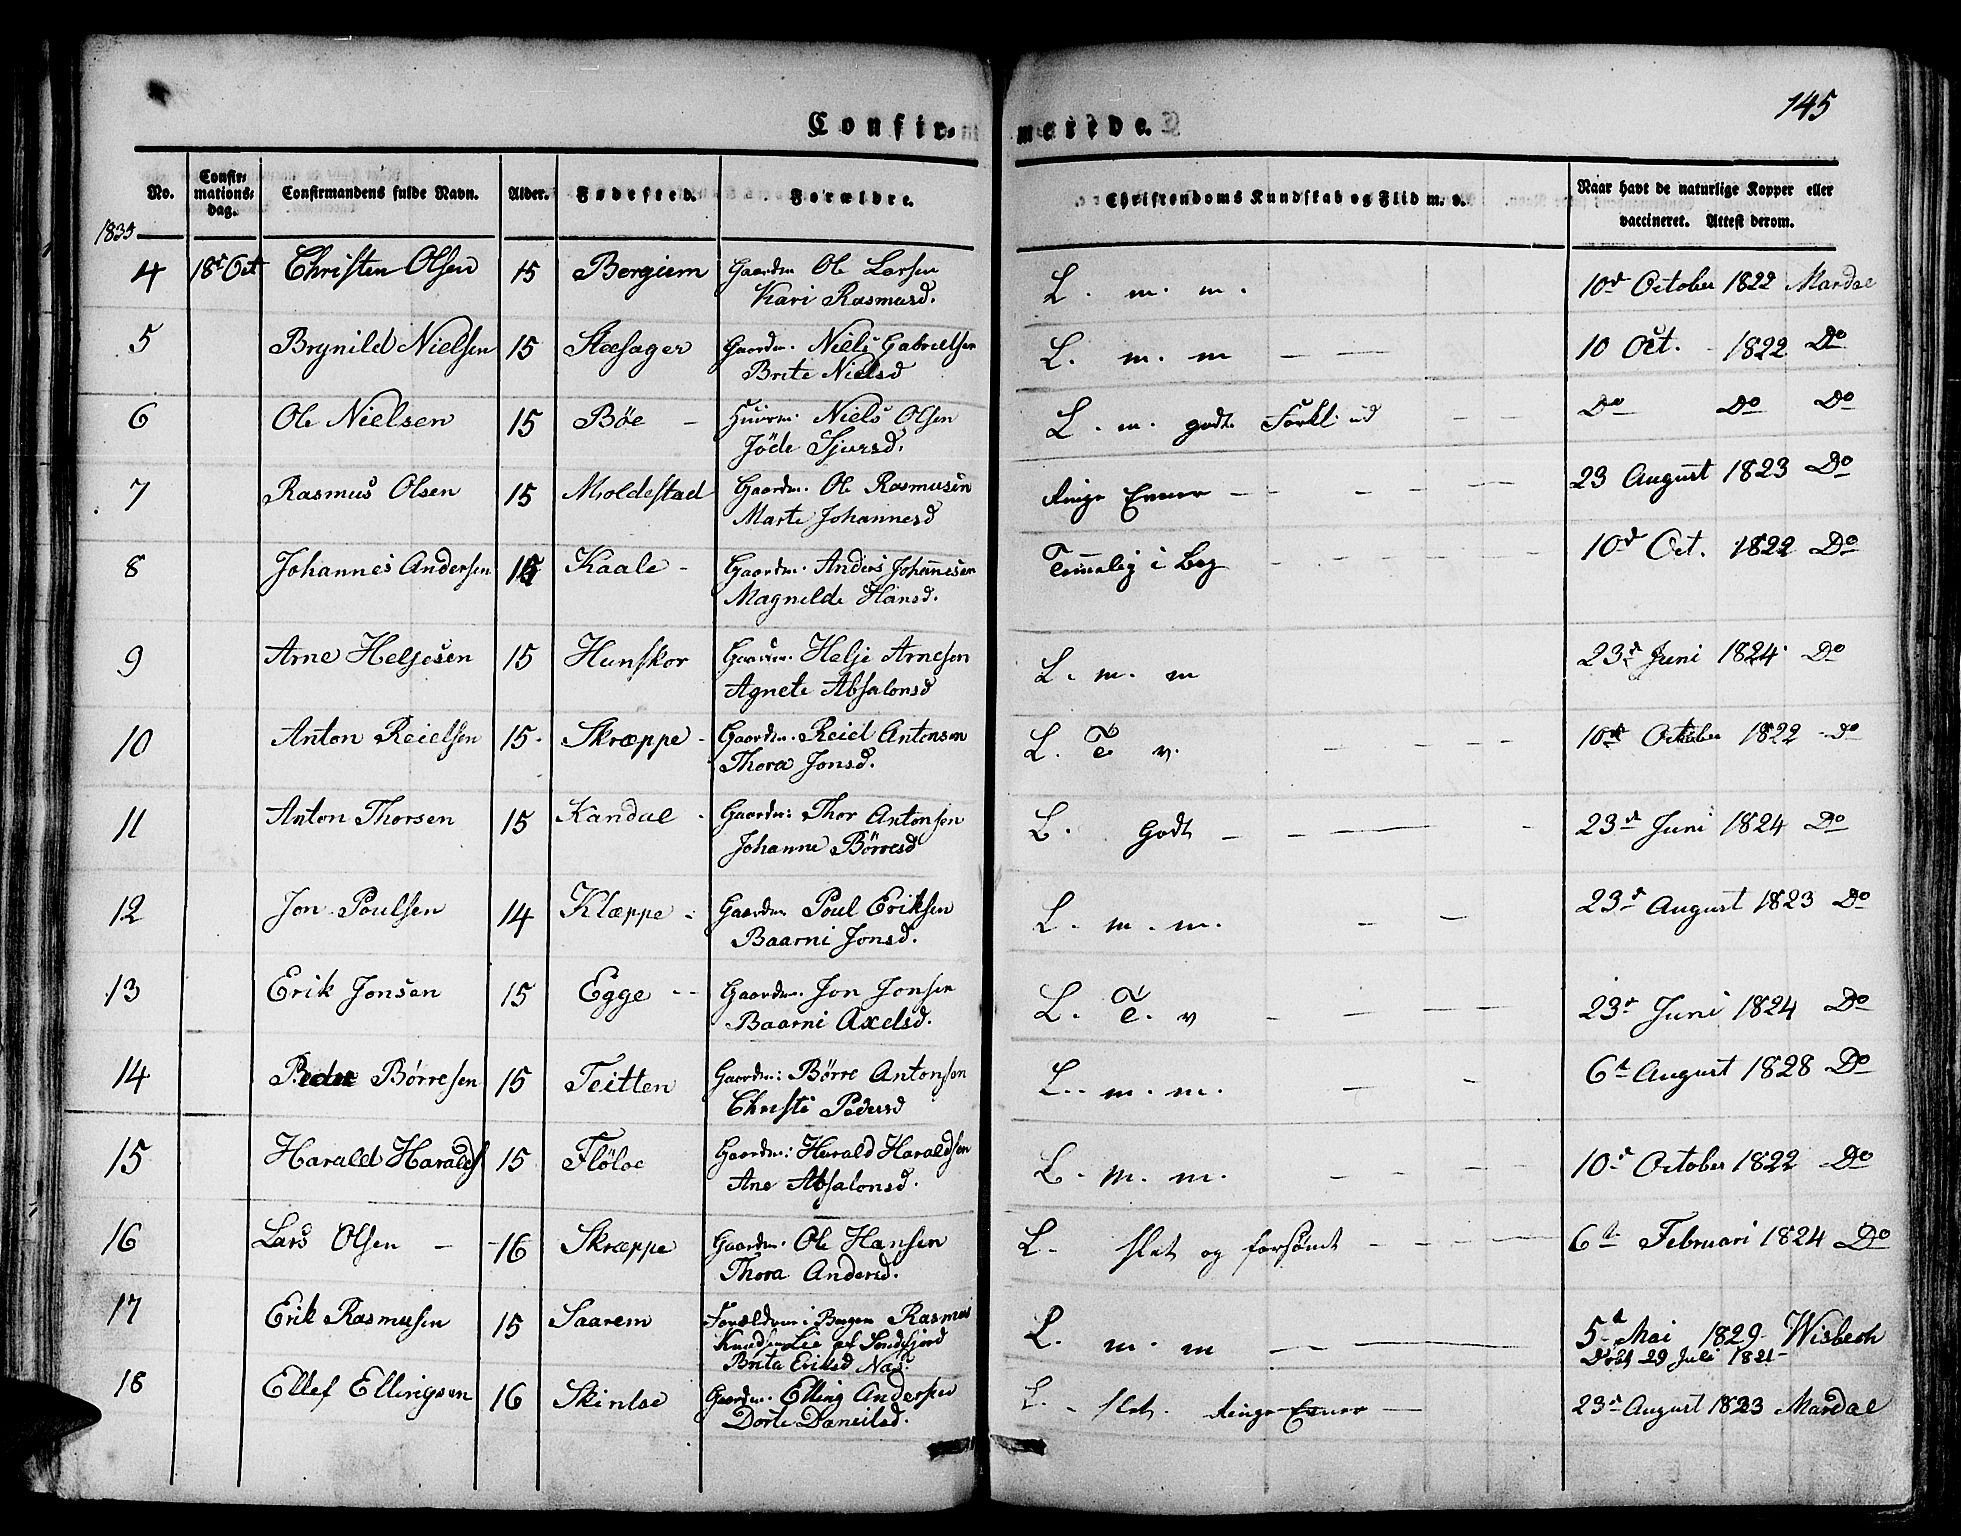 145
Confirmerede.
No. Confirmations-dag. Confirmandens fulde Navn. Alder. Fødested. Forældre. Christendoms Kundskab og Flid m. v. Naar havt de naturlige Kopper eller vaccineret. Attest derom.
1835
4 18d Oct Christen Olsen 15 Bergiem Gaardm Ole Larsen L. m. m. 10d October 1822 Mardal
Kari Rasmusd.
5 Brynild Nielsen 15 Stesager Gaardm. Niels Gabrielsen L. m. m — — 10 Oct. 1822 Do
Brite Nielsd
6 Ole Nielsen 15 Bøe — Huusm. Niels Olsen L. m. godt Forkl. — — Do Do Do
Jöde Sjursd.
7 Rasmus Olsen 15 Moldestad Gaardm. Ole Rasmusen Ringe Evner — — — — — 23 August 1823 Do
Marte Johannesd
8 Johannes Andersen 15 Kaale - Gaardm. Anders Johannesen Temmelig i Bog — — — — 10d Oct. 1822 Do
Magnilde Hansd.
9 Arne Heljesen 15 Hunskor Gaardm. Helje Arnesen L. m. m 23d Juni 1824 Do
Agnete Absalonsd
10 Anton Reielsen 15. Skræppe - Gaardm. Reiel Antonsen L. T v. — — — — 10d October 1822 Do
Thora Jonsd.
11 Anton Thorsen 15 Kandal - Gaardm: Thor Antonsen L. Godt — — — — 23d Juni 1824 Do
Johanne Børresd
12 Jon Poulsen 14 Klæppe - Gaardm Poul Eriksen L. m. m. — — 23d August 1823 Do
Baarni Jonsd.
13 Erik Jonsen 15 Egge -- Gaardm. Jon Jonsen L. T. v — — — — 23d Juni 1824 Do
Baarni Axelsd.
14 Peder Børresen 15 Teitten Gaardm: Børre Antonsen L. m. m. — — 6d August 1828 Do
Christi Pedersd
15 Harald Haralds 15 Flöloe Gaardm: Harald Haraldsen L. m. m. — — — — 10d October 1822 Do
Ane Absalonsd.
16 Lars Olsen — 16 Skræppe Gaardm. Ole Hansen L. slet og forsömt — — — — 6d Februari 1824 Do
Thora Andersd.
17 Erik Rasmusen 15 Saarem Forældrene i Bergen Rasmus L. m. m — — 5d Mai 1829 Wisbech
Knudsen Lie af Sondfjord Döbt 29 Juli 1821
Brita Eriksd Nas.
18 Ellef Ellingsen 16 Skinloe Gaardm. Elling Andersen L. slet. Ringe Evner — 23d August 1823 Mardal
Dorte Danielsd.